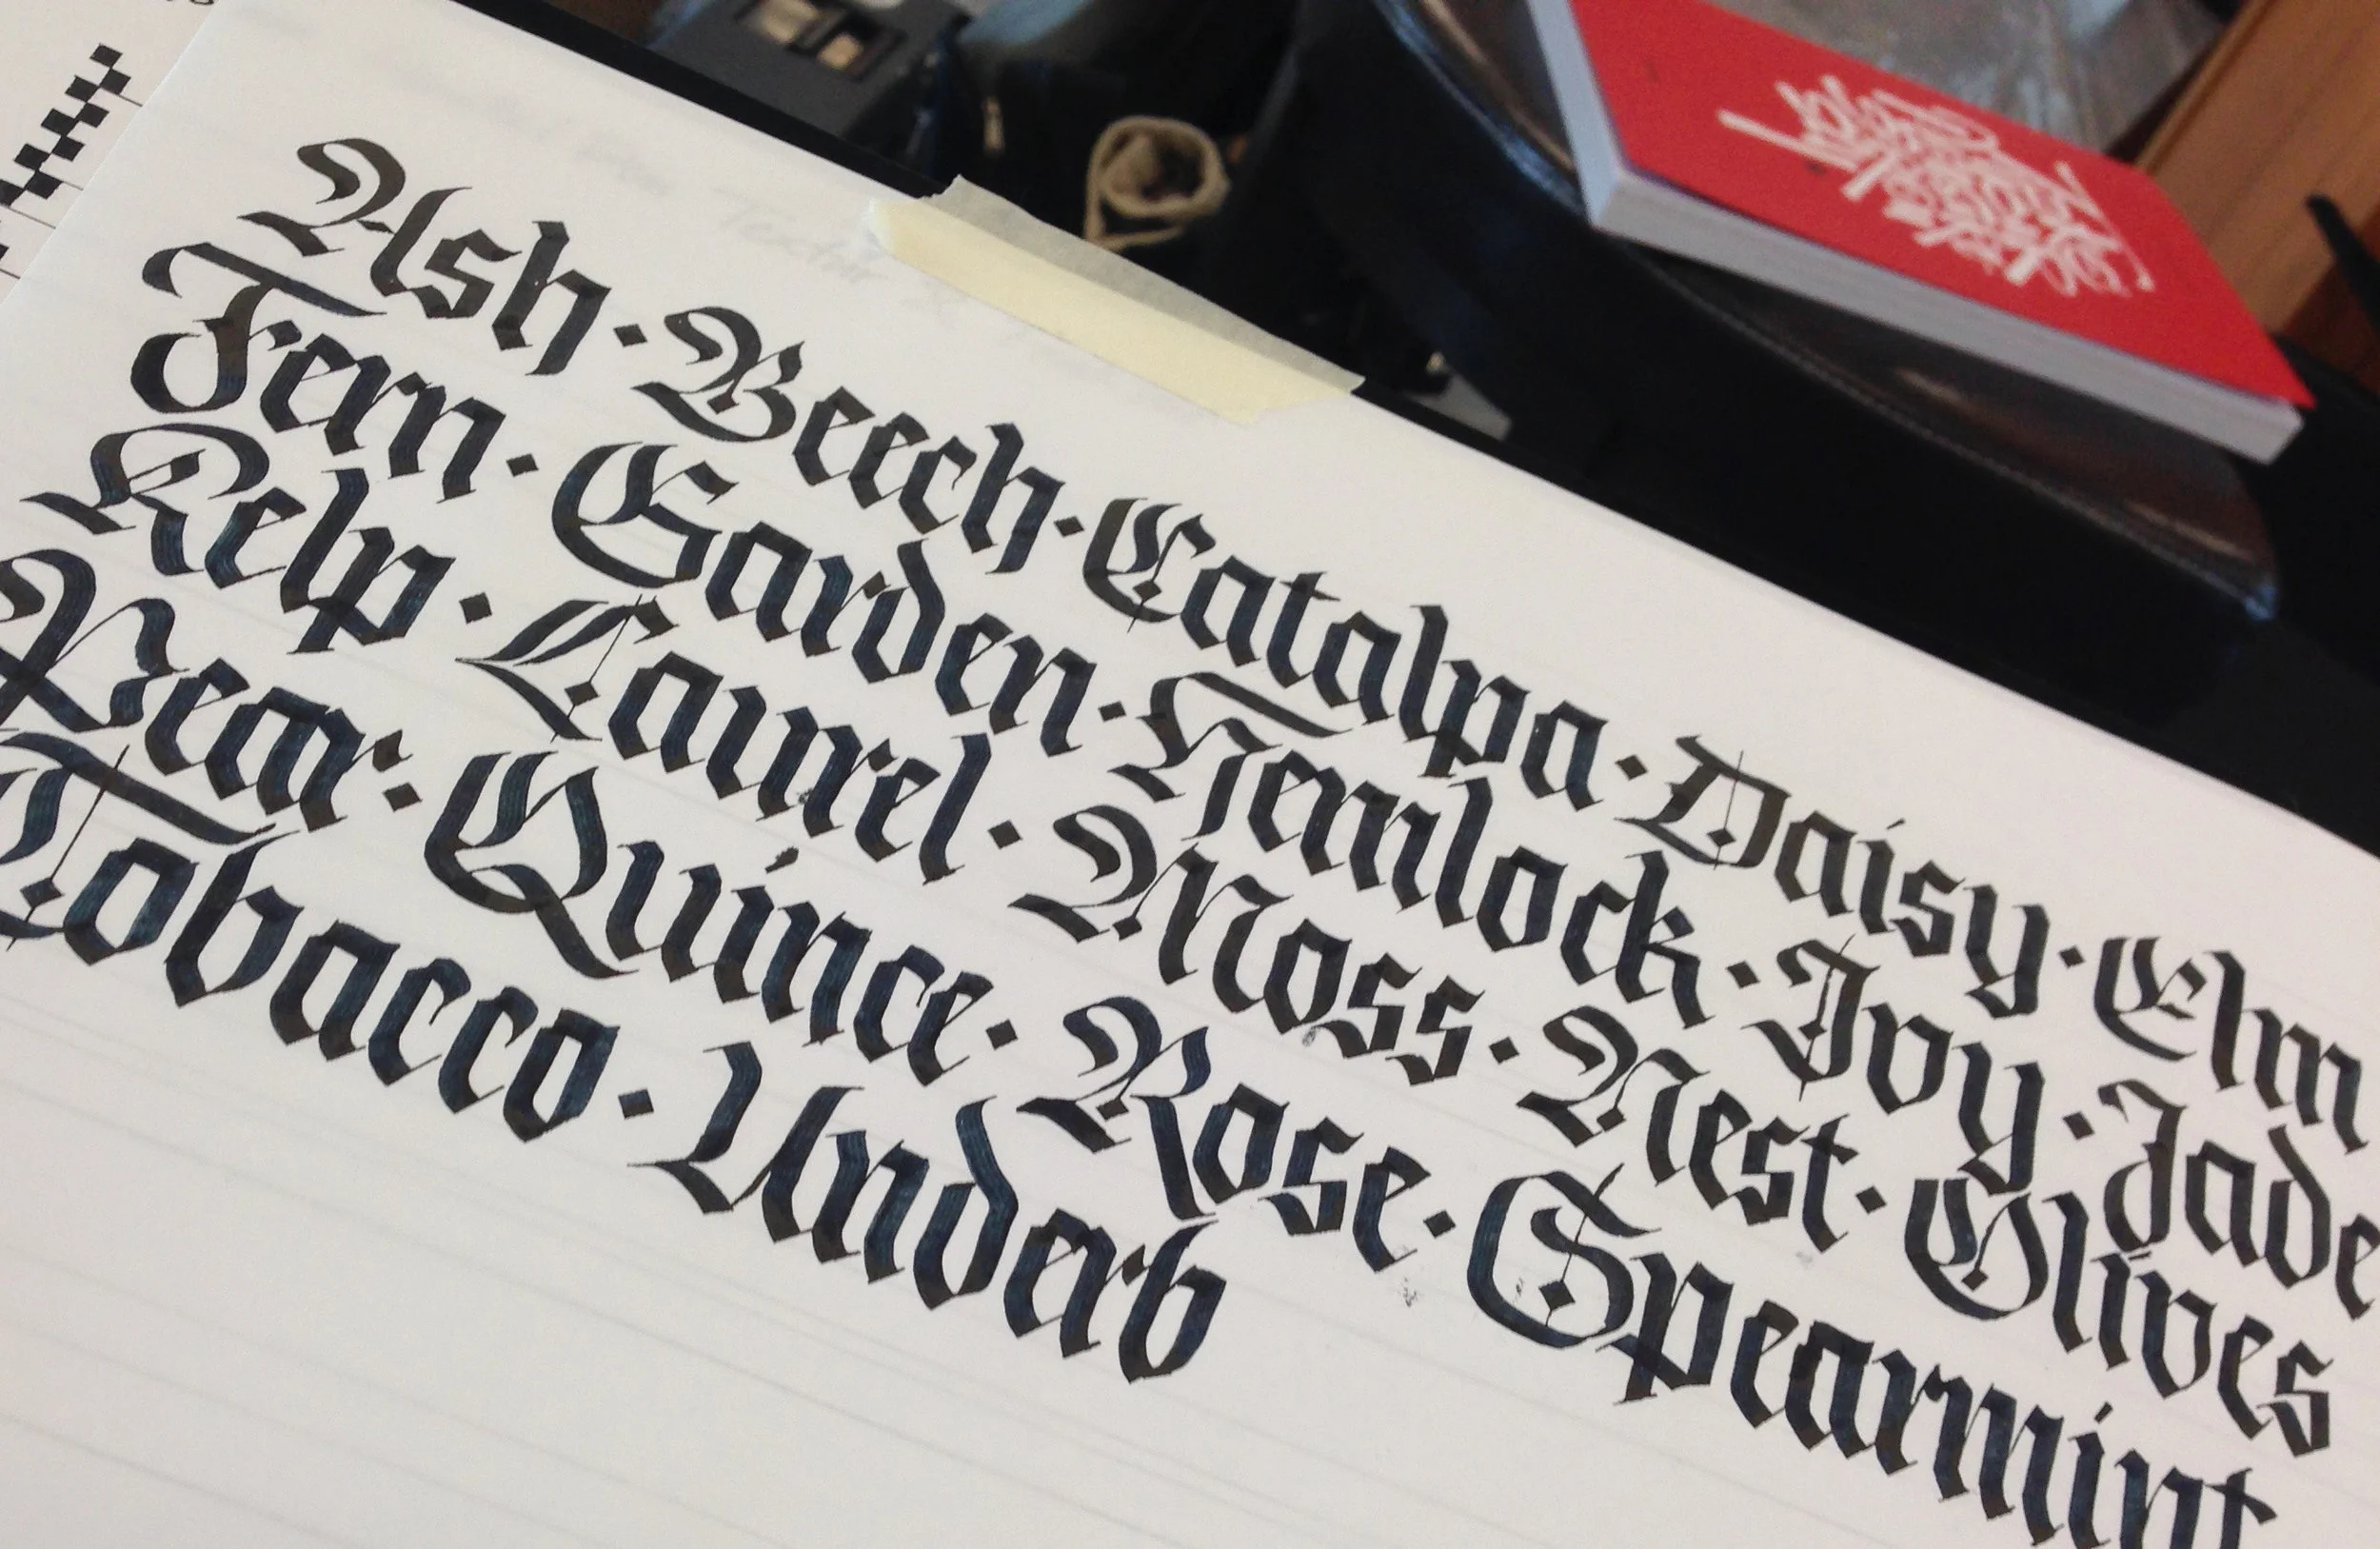 Ash · Beech · Catalpa · Daisy · Elm
Fern · Garden · Hemlock · Ivy · Jade
Kelp · Laurel · Moss · Nest · Olives
Pear · Quince · Rose · Spearmint
Tobacco · Underb